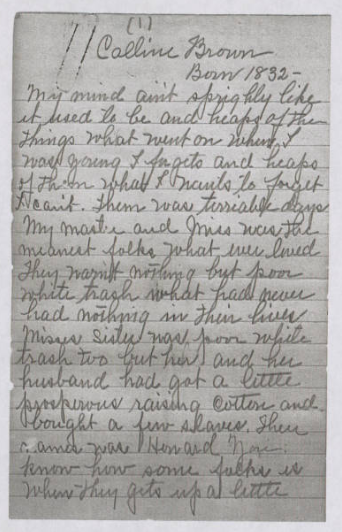 (1)
Calline Brown
Born 1832-
My mind ain't sprighly like
it used to be and heaps of the
things what went on when I
was young I fugits and heaps
of them what I wents to forget
I can't. Them was terriable days
My master and Miss was the
meanest folks what ever lived
They warn't nothing but poor
white trash what had never
had nothing in their lives
Misses Sister was poor white
trash too but her and her
husband had got a little
prosperous raising Cotton and
bought a few slaves. Their
names was Howard Now
know how some folks is
when they gets up a little